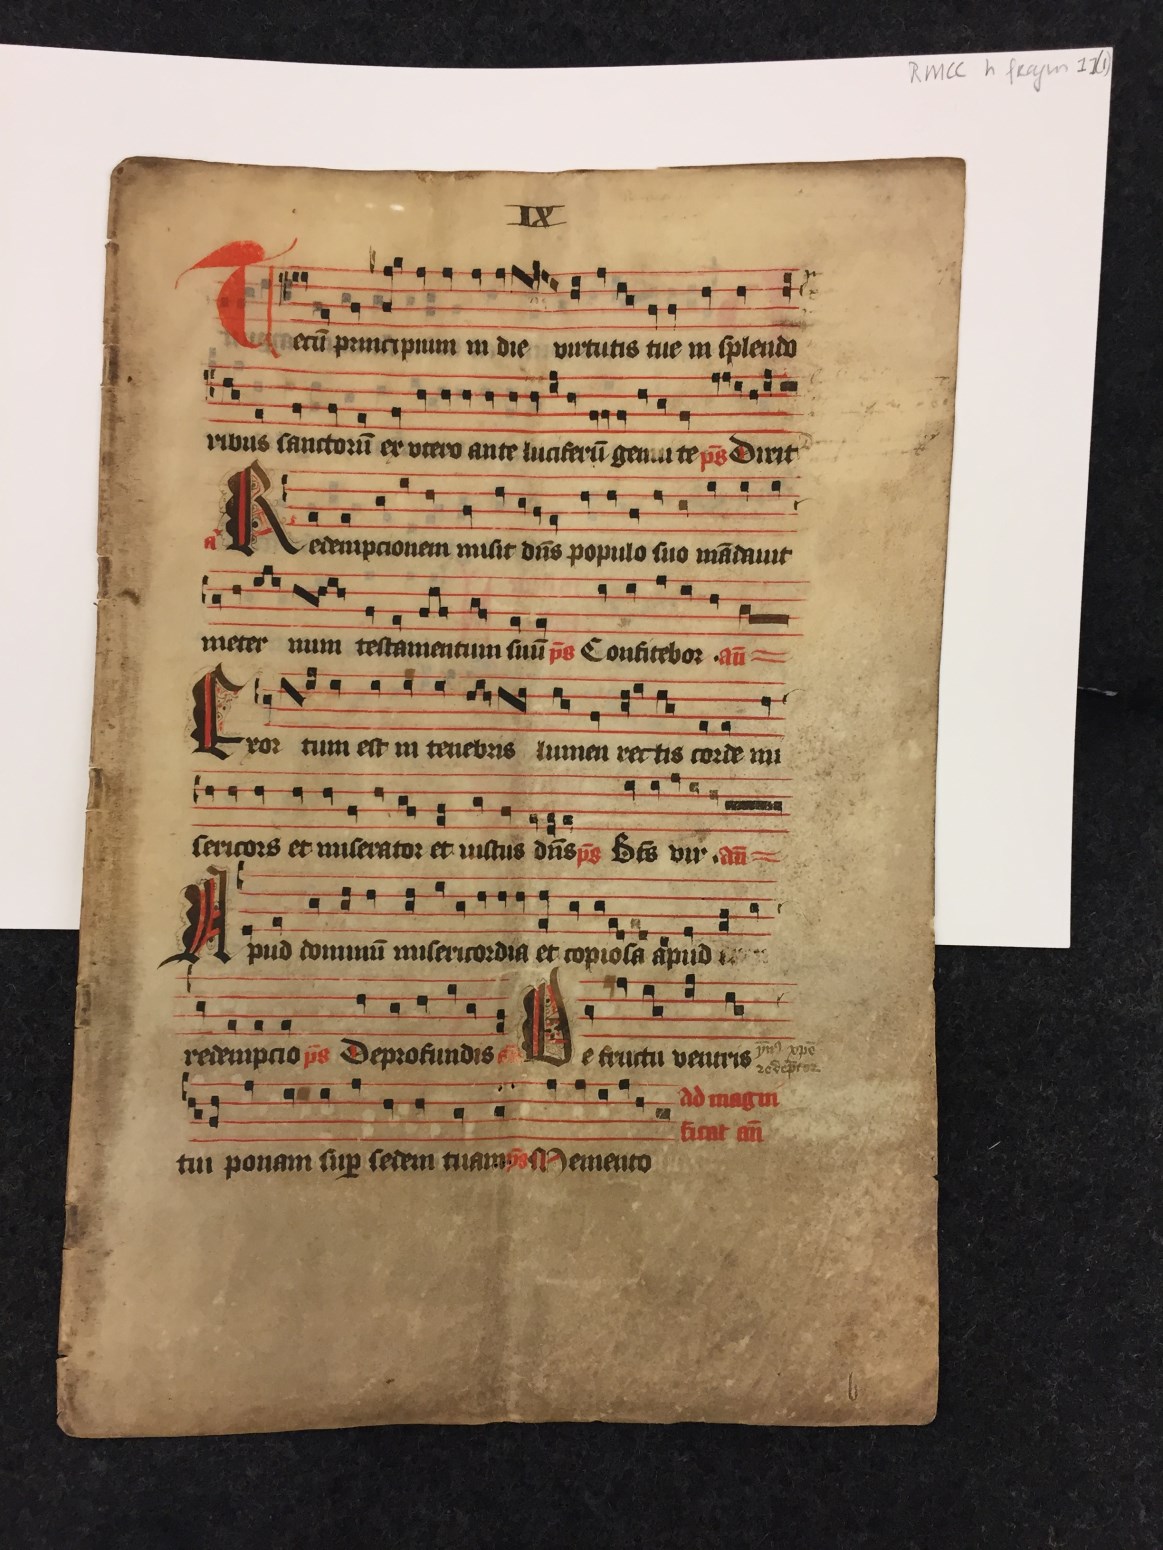 RMCC h fragm 11(1)
IX
Tecū principium in die virtutis tue in splendo
ribus sanctorū ex vtero ante luciferū genui te p̄s Dixit
a Redempcionem misit dn̄s populo suo mādauit
in eter num testamentum suū p̄s Confitebor . an̄
Exor tum est in tenebris lumen rectis corde mi
sericors et miserator et iustus dn̄s p̄s Btūs vir . an̄
Apud dominū misericordia et copiosa apud
redempcio p̄s Deprofundis an̄ De fructu ventris
ymꝰ xp̄e
redēptor
ad magni
ficat an̄
tui ponam suꝑ sedem tuam p̄s Memento
b